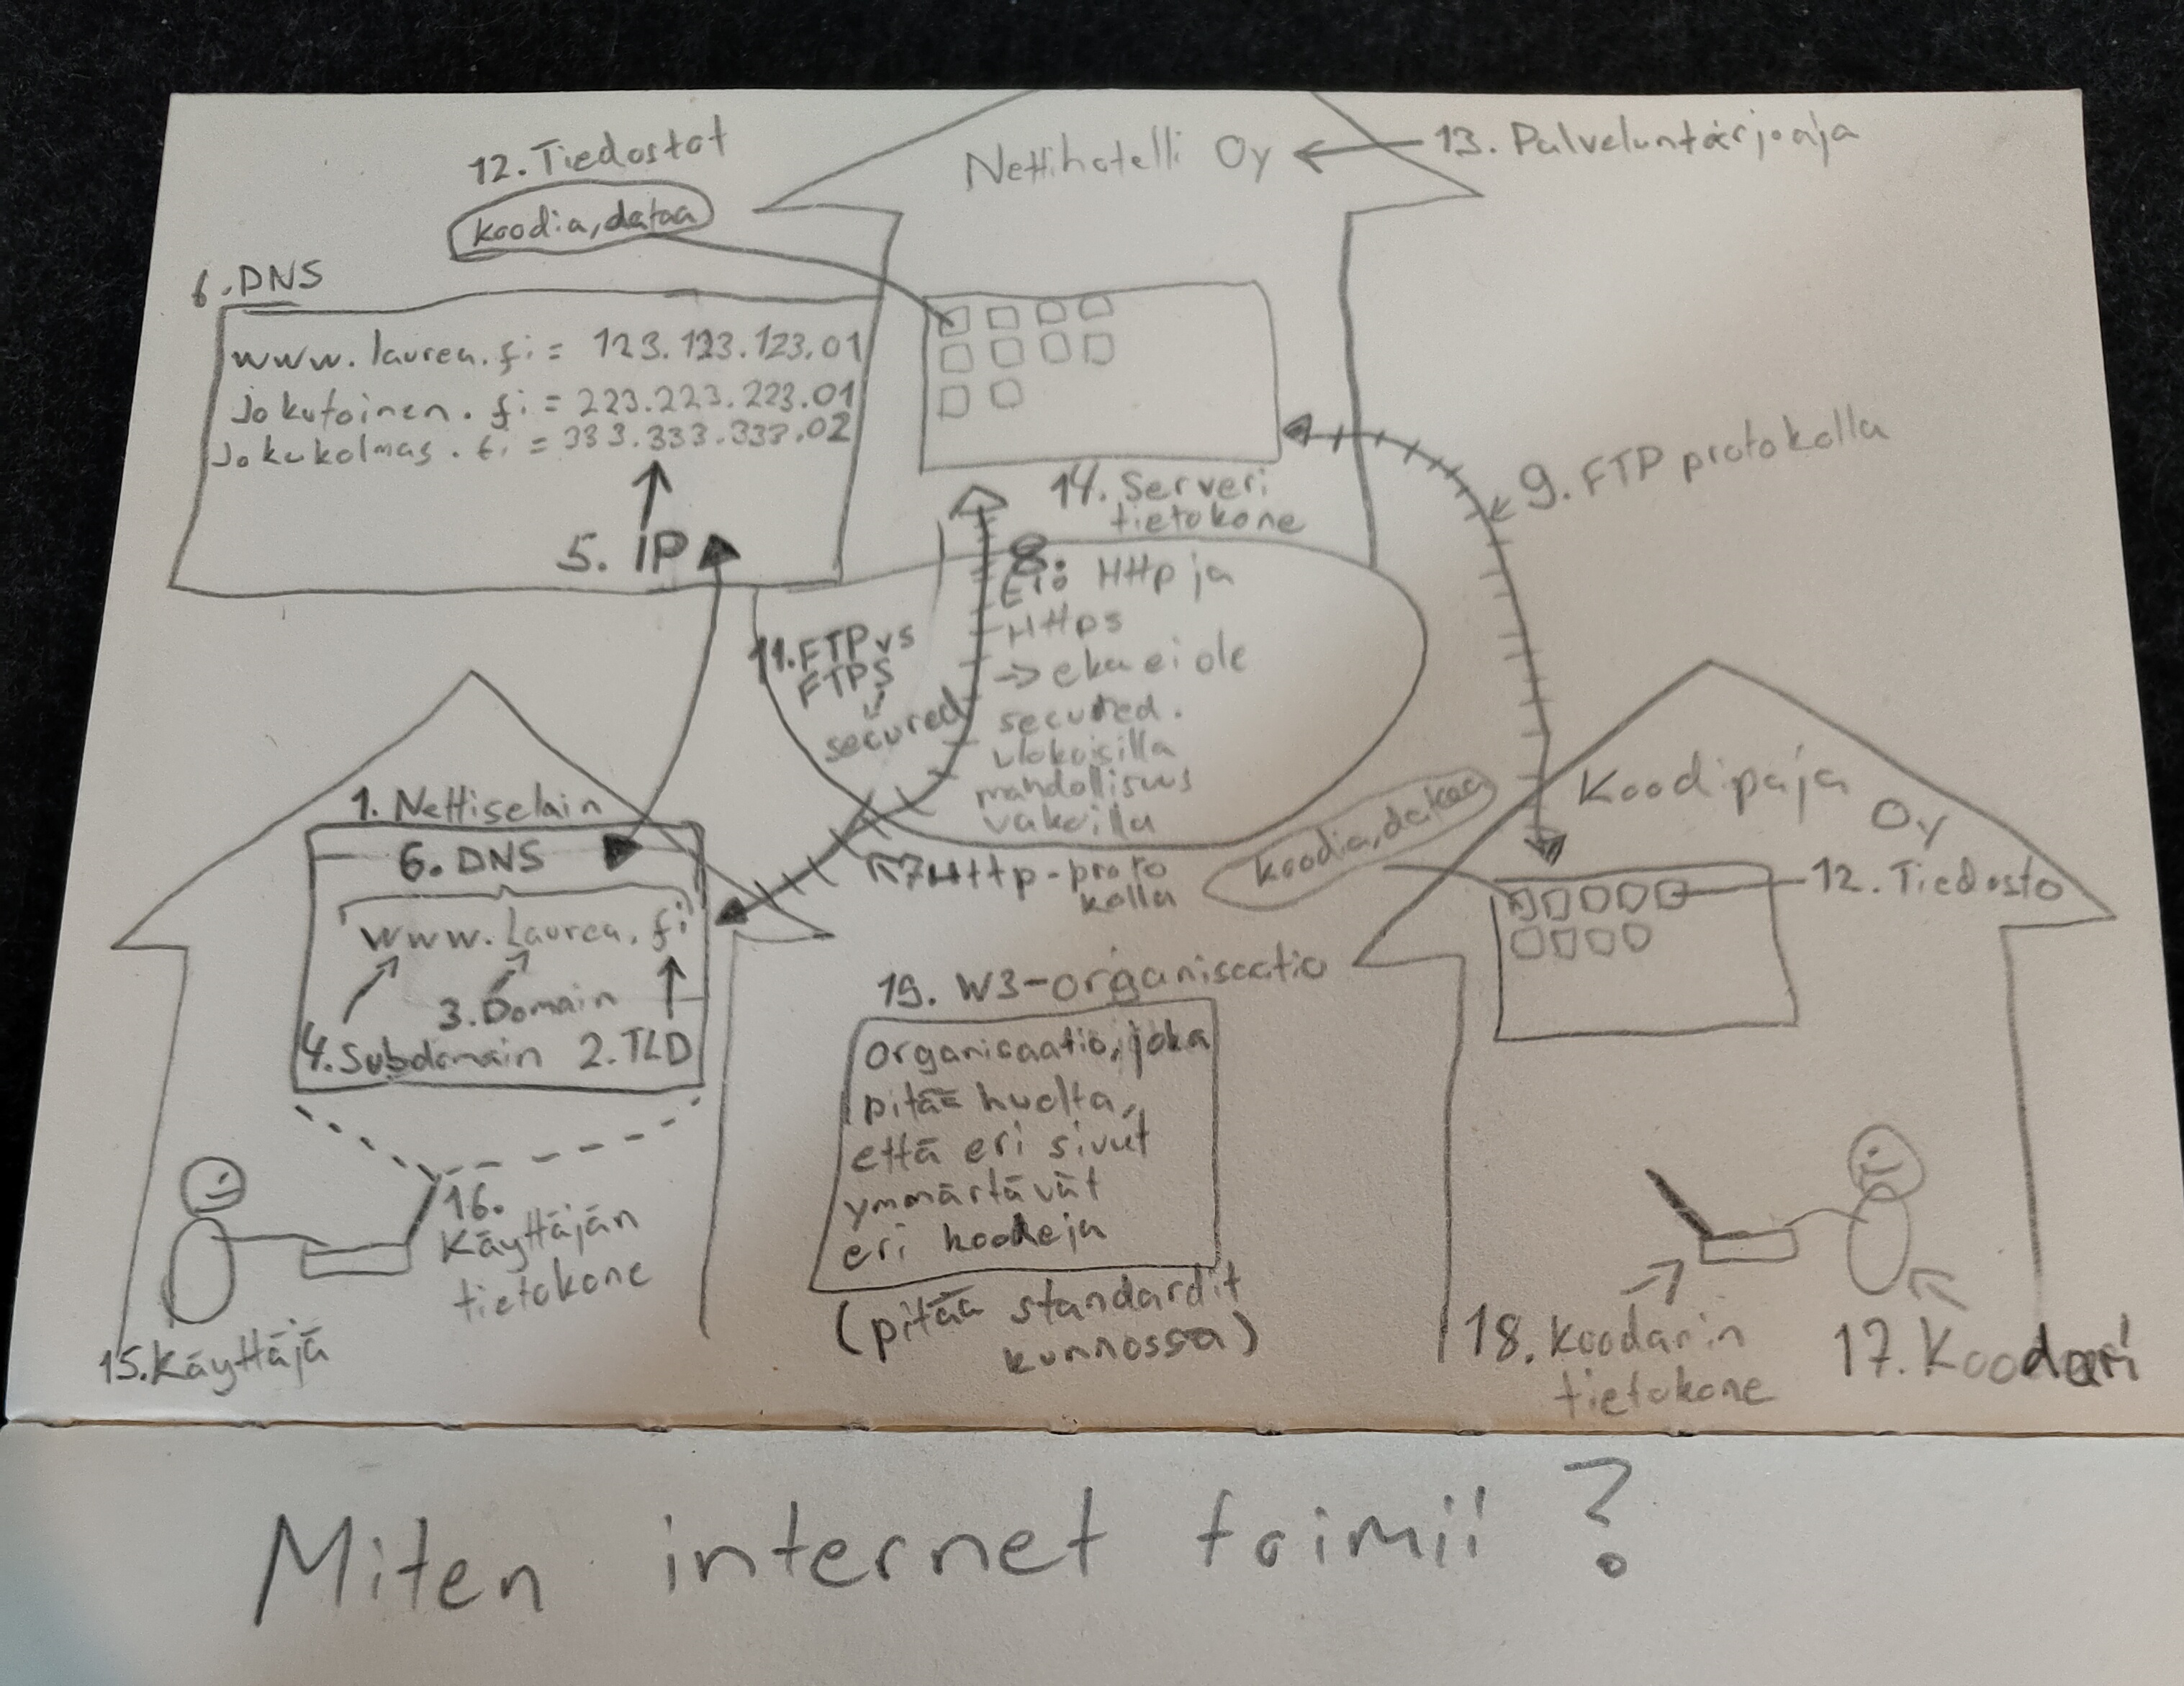 12. Tiedostot
koodia, dataa
Nettihotelli Oy
13. Palveluntarjoaja
6. DNS
www.laurea.fi = 123.123.123.01
jokutoinen.fi = 223.223.223.01
Jokukolmas.fi = 333.333.333.02
5. IP
14. Serveri
tietokone
9. FTP protokolla
8.
Ero Http ja
Https
→ eka ei ole
secured.
ulokoisilla
mahdollisuus
vakoilla
11. FTP vs
FTPS
secured
7. Http-proto
kolla
1. Nettiselain
6. DNS
www.laurea.fi
3. Domain
4. Subdomain 2. TLD
16.
Käyttäjän
tietokone
15. Käyttäjä
19. W3-organisaatio
organisaatio, joka
pitää huolta,
että eri sivut
ymmärtävät
eri koodeja
(pitää standardit
kunnossa)
koodia, dataa
Koodipaja
Oy
12. Tiedosto
18. Koodarin
tietokone
17. Koodari
Miten internet toimii?